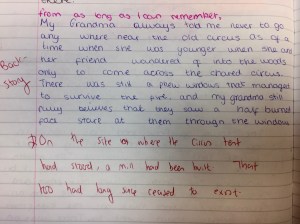 there.
from as long as I can remember.
My Grandma always told me never to go
any where near the old circus as of a
time when she was younger when she and
her friend wandured of into the woods
only to come across the chared circus.
There was still a few windows that managed
to survive the fire, and my grandma still
fully belives that they saw a half burned
face stare at them through the window
Back
story
On the site on where the circus tent
had stood, a mill had been built. That
too had long since ceased to exist.